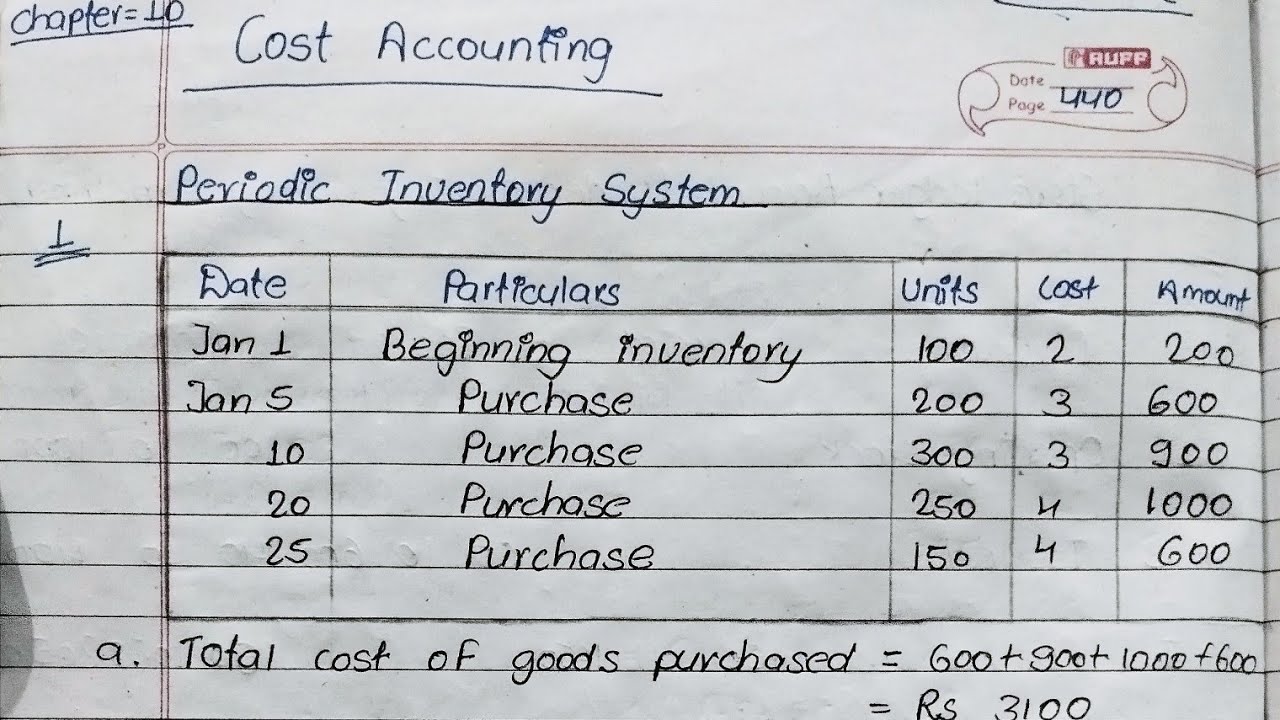 Chapter=10
Cost Accounting
RUFF
Date
Page 440
Periodic Inventory System
1
Date Particulars Units Cost Amount
Jan 1 Beginning inventory 100 2 200
Jan 5 Purchase 200 3 600
10 Purchase 300 3 900
20 Purchase 250 4 1000
25 Purchase 150 4 600
a. Total cost of goods purchased = 600+900+1000+600
= Rs 3100